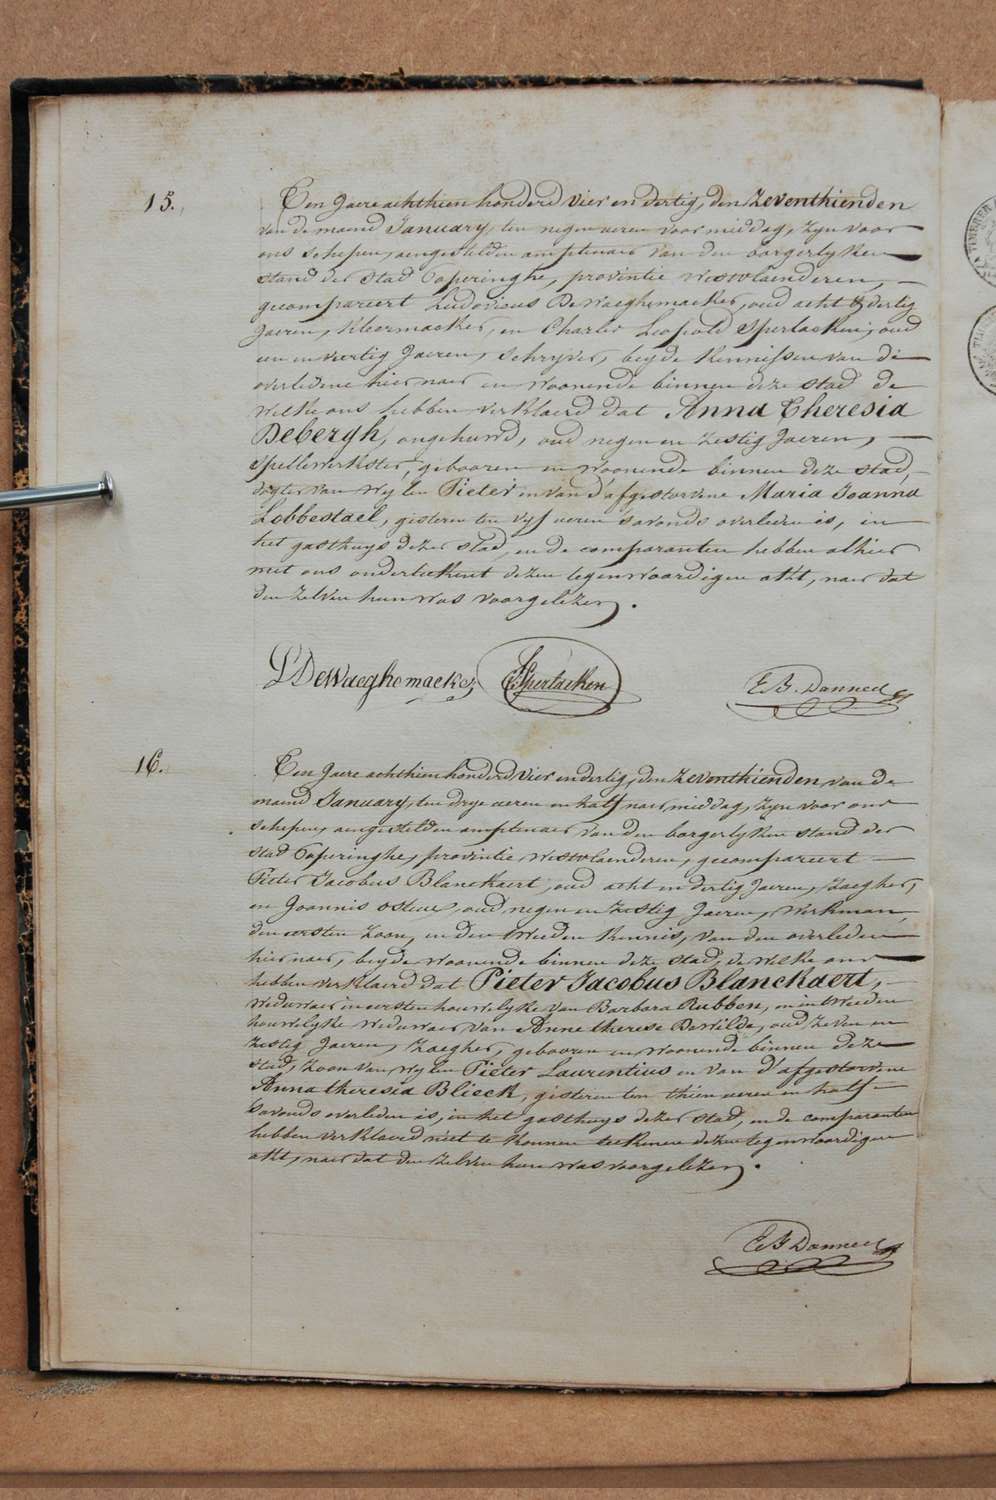 15.
Den Jaere achthien honderd vier en dertig, den Zeventhienden
van de maend January, ten negen ueren voor middag, zyn voor
ons schepen, aengestelden amptenaer van den borgerlyken
stand der stad Poperinghe, provintie Westvlaenderen,
gecompareert Ludovicus De Waeghemaeker, oud acht & dertig
Jaeren, Kleermaeker, en Charles Leopold Sperlaeken, oud
een en veertig Jaeren, Schryver, beyde Kennissen van de
overledene hier naer en woonende binnen deze stad de
welke ons hebben verklaerd dat Anna Theresia
Debergh, ongehuwd, oud negen en zestig Jaeren,
Spellewerkster, gebooren en woonende binnen deze stad,
dogter van wylen Pieter en van d'afgestorvene Maria Joanna
Lobbestael, gisteren ten vyf ueren savonds overleden is, in
het gasthuys dezer stad, en de comparanten hebben alhier
met ons onderteekent dezen tegenwoordigen akt, naer dat
den zelven hun was voorgelezen.
L DeWaeghemaeker Sperlaeken E B. Danneel
16.
Den Jaere achthien honderd vier en dertig, den Zeventhienden van de
maend January, ten drye ueren en half naer middag, zyn voor ons
schepen, aengestelden amptenaer van den borgerlyken stand der
stad Poperinghe, provintie Westvlaenderen, gecompareert
Pieter Jacobus Blanckaert, oud acht en dertig Jaeren, Zaegher,
en Joannis Osteux, oud negen en zestig Jaeren, Werkman,
den eersten zoon, en den tweeden Kennis, van den overleden
hier naer, beyde woonende binnen deze stad, de welke ons
hebben verklaerd dat Pieter Jacobus Blanckaert,
Weduwaer in eersten houwelyke van Barbara Rubben, en in tweeden
houwelyke Weduwaer van Anne therese DeWilde, oud zeven en
zestig Jaeren, Zaegher, gebooren en woonende binnen deze
stad, zoon van wylen Pieter Laurentius en van d'afgestorvene
Anna theresia Blieck, gisteren ten thien ueren en half
savonds overleden is, in het gasthuys dezer stad, en de comparanten
hebben verklaerd niet te konnen teekenen dezen tegenwoordigen
akt, naer dat den zelven hun was voorgelezen.
E B Danneel